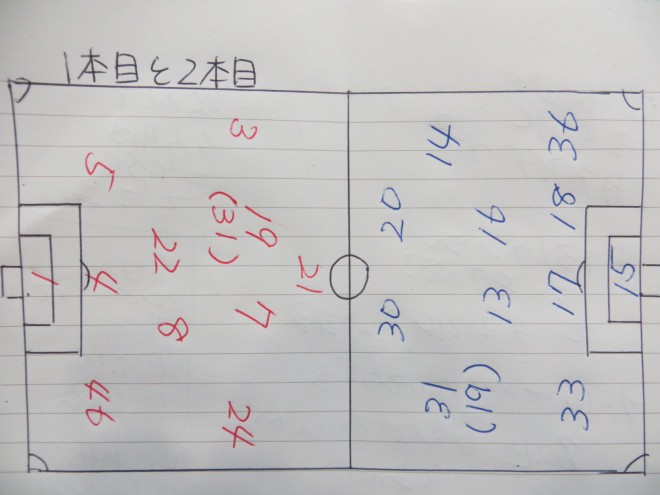 1本目と2本目
3
5
19
(31)
22
21
1
4
7
8
46
24
14
36
20
16
18
30
13
17
15
31
(19)
33